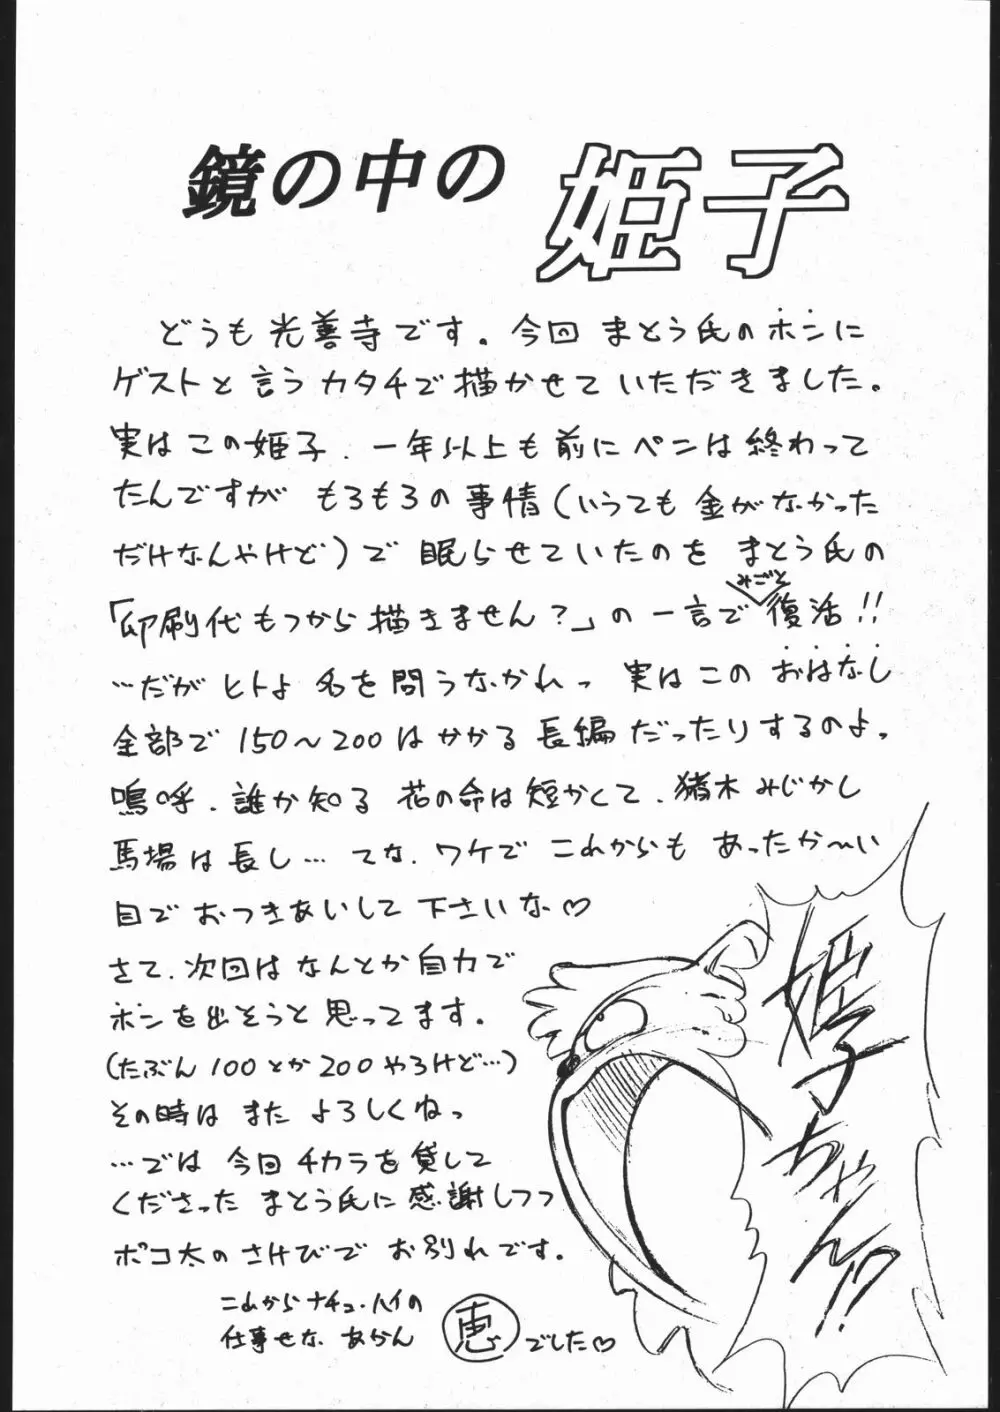 鏡の中の 姫子
どうも光善寺です。今回 まとう氏のホンに
ゲストと言うカタチで描かせていただきました。
実はこの姫子、一年以上も前にペンは終わって
たんですが もろもろの事情(いうても金がなかった
だけなんやけど)で 眠らせていたのを まとう氏の
「印刷代もつから描きません?」の一言で みごと 復活!!
…だがヒトよ 名を問うなかれっ 実はこのおはなし
全部で150〜200はかかる長編だったりするのよっ
嗚呼、誰か知る 花の命は短かくて、猪木みじかし
馬場は長し… てな、ワケで これからも あったか〜い
目で おつきあいして下さいな♡
さて、次回はなんとか自力で
ホンを出そうと思ってます。
(たぶん100とか200やろけど…)
その時は また よろしくねっ
…では 今回 チカラを貸して
くださった まとう氏に感謝しつつ
ポコ太のさけびで お別れです。
これからナチュ・ハイの
仕事せな あかん 恵 でした♡
姫子ちゃん!?